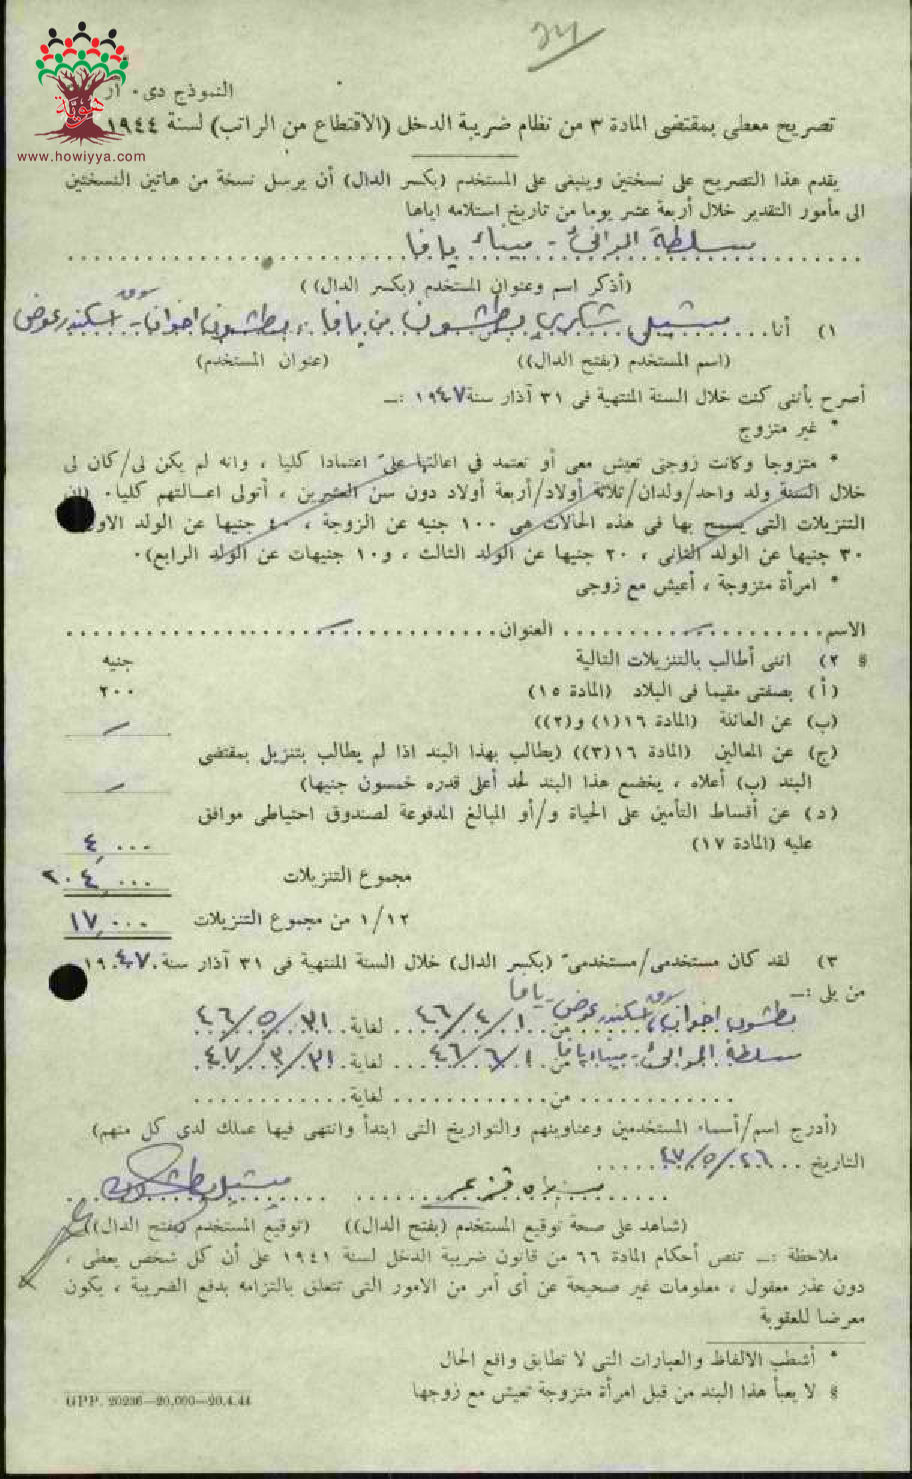 ٢٤
هويّة
www.howiyya.com
النموذج دى٠ ار
تصريح معطى بمقتضى المادة ٣ من نظام ضريبة الدخل (الاقتطاع من الراتب) لسنة ١٩٤٤
يقدم هذا التصريح على نسختين وينبغى على المستخدم (بكسر الدال) أن يرسل نسخة من هاتين النسختين
الى مأمور التقدير خلال أربعة عشر يوما من تاريخ استلامه اياها
سلطة الموانئ - ميناء يافا
(أذكر اسم وعنوان المستخدم (بكسر الدال))
١) أنا ميشيل شكري بطشون من يافا، بطشون اخوان - سوق اسكندر عوض
(اسم المستخدم (بفتح الدال)) (عنوان المستخدم)
أصرح بأننى كنت خلال السنة المنتهية فى ٣١ آذار سنة ١٩٤٧ :ـ
* غير متزوج
* متزوجا وكانت زوجتى تعيش معى أو تعتمد في اعالتها علىّ اعتمادا كليا ، وانه لم يكن لى/كان لى
خلال السنة ولد واحد/ولدان/ثلاثة أولاد/أربعة أولاد دون سن العشرين ، أتولى اعـالتهم كليا٠ (ان
التنزيلات التى يسمح بها فى هذه الحالات هى ١٠٠ جنيه عن الزوجة ، ٤٠ جنيها عن الولد الاول
٣٠ جنيها عن الولد الثانى ، ٢٠ جنيها عن الولد الثالث ، و١٠ جنيهات عن الولد الرابع)٠
* امرأة متزوجة ، أعيش مع زوجى
الاسم العنوان
§ ٢) اننى أطالب بالتنزيلات التالية جنيه
(أ) بصفتى مقيما فى البلاد (المادة ١٥) ٢٠٠
(ب) عن العائلة (المادة ١٦(١) و(٢)) —
(ج) عن المعالين (المادة ١٦(٣)) (يطالب بهذا البند اذا لم يطالب بتنزيل بمقتضى
البند (ب) أعلاه ، يخضع هذا البند لحد أعلى قدره خمسون جنيها) —
(د) عن أقساط التأمين على الحياة و/أو المبالغ المدفوعة لصندوق احتياطى موافق
عليه (المادة ١٧) ٤,٠٠٠
مجموع التنزيلات ٢٠٤,٠٠٠
١/١٢ من مجموع التنزيلات ١٧,٠٠٠
٣) لقد كان مستخدمى/مستخدمىّ (بكسر الدال) خلال السنة المنتهية فى ٣١ آذار سنة ١٩٤٧
من يلى :ـ
بطشون اخوان، سوق اسكندر عوض - يافا من ٤٦/٤/١ لغاية ٤٦/٥/٣١
سلطة الموانئ - ميناء يافا من ٤٦/٦/١ لغاية ٤٧/٣/٣١
من لغاية
(أدرج اسم/أسماء المستخدمين وعناوينهم والتواريخ التى ابتدأ وانتهى فيها عملك لدى كل منهم)
التاريخ ٤٧/٥/٢٦
ميشيل بطشون
(شاهد على صحة توقيع المستخدم (بفتح الدال)) (توقيع المستخدم (بفتح الدال))
ملاحظة :ـ تنص أحكام المادة ٦٦ من قانون ضريبة الدخل لسنة ١٩٤١ على أن كل شخص يعطى ،
دون عذر معقول ، معلومات غير صحيحة عن أى أمر من الامور التى تتعلق بالتزامه بدفع الضريبة ، يكون
معرضا للعقوبة
* أشطب الالفاظ والعبارات التى لا تطابق واقع الحال
§ لا يعبأ هذا البند من قبل امرأة متزوجة تعيش مع زوجها
GPP. 20236—20,000—20.4.44